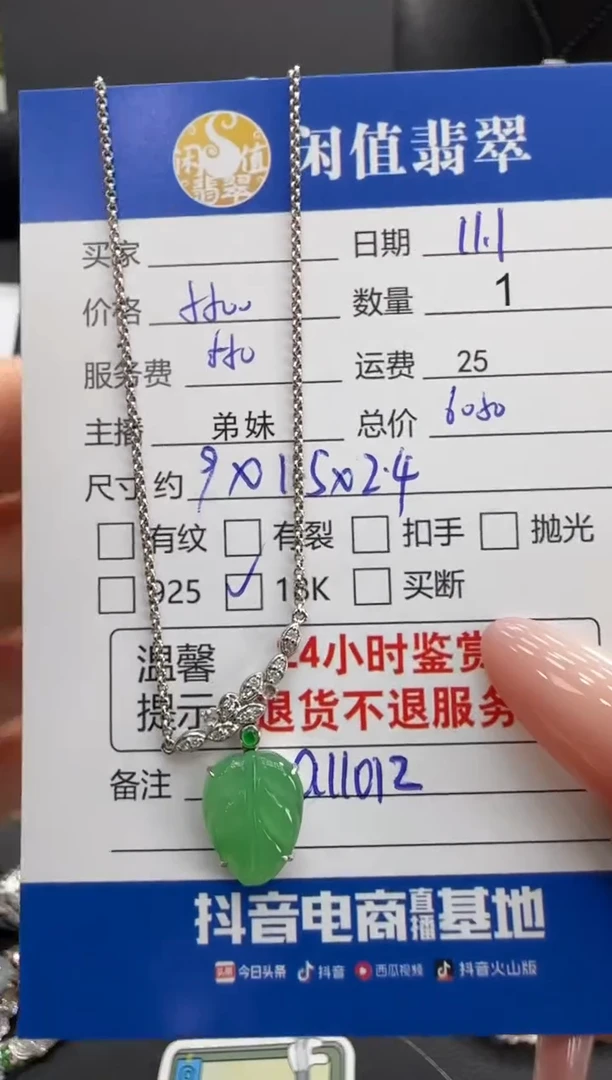 闲值翡翠
闲值翡翠
买家 日期 11.1
价格 5500 数量 1
服务费 550 运费 25
主播 弟妹 总价 6050
尺寸 约 9X15X2.4
有纹 有裂 扣手 抛光
925 18K 买断
温馨 24小时鉴赏
提示 退货不退服务
备注 a11012
抖音电商直播基地
头条 今日头条 抖音 西瓜视频 抖音火山版